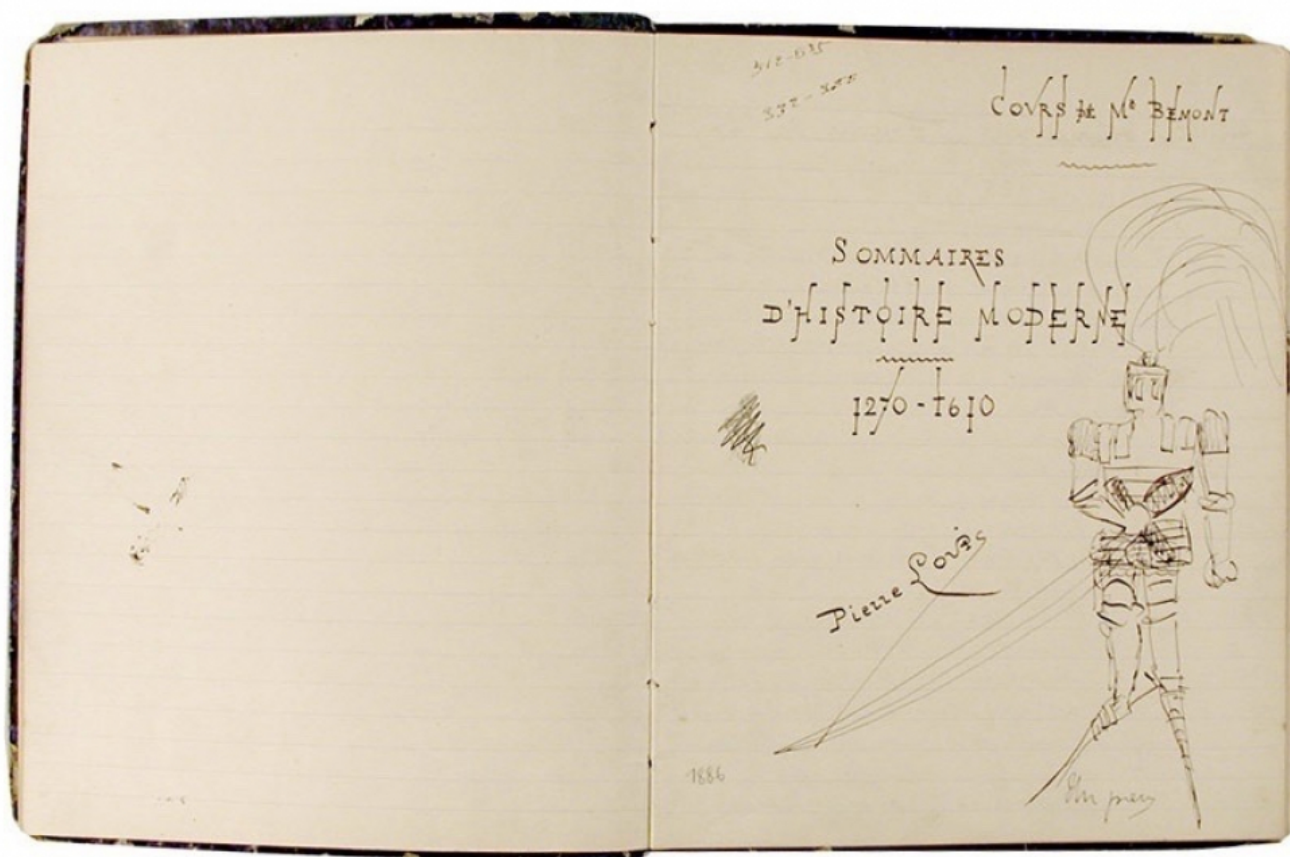 COVRS DE Mr BEMONT
SOMMAIRES
D'HISTOIRE MODERNE
1270-1610
Pierre Louÿs
1886
Un preux